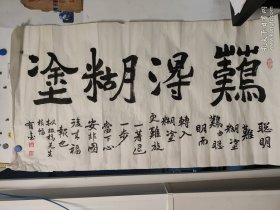 難得糊塗
聰明
難
糊塗
難由聰
明而
轉入
糊塗
更難放
一着退
一步
當下心
安非圖
後來福
報也